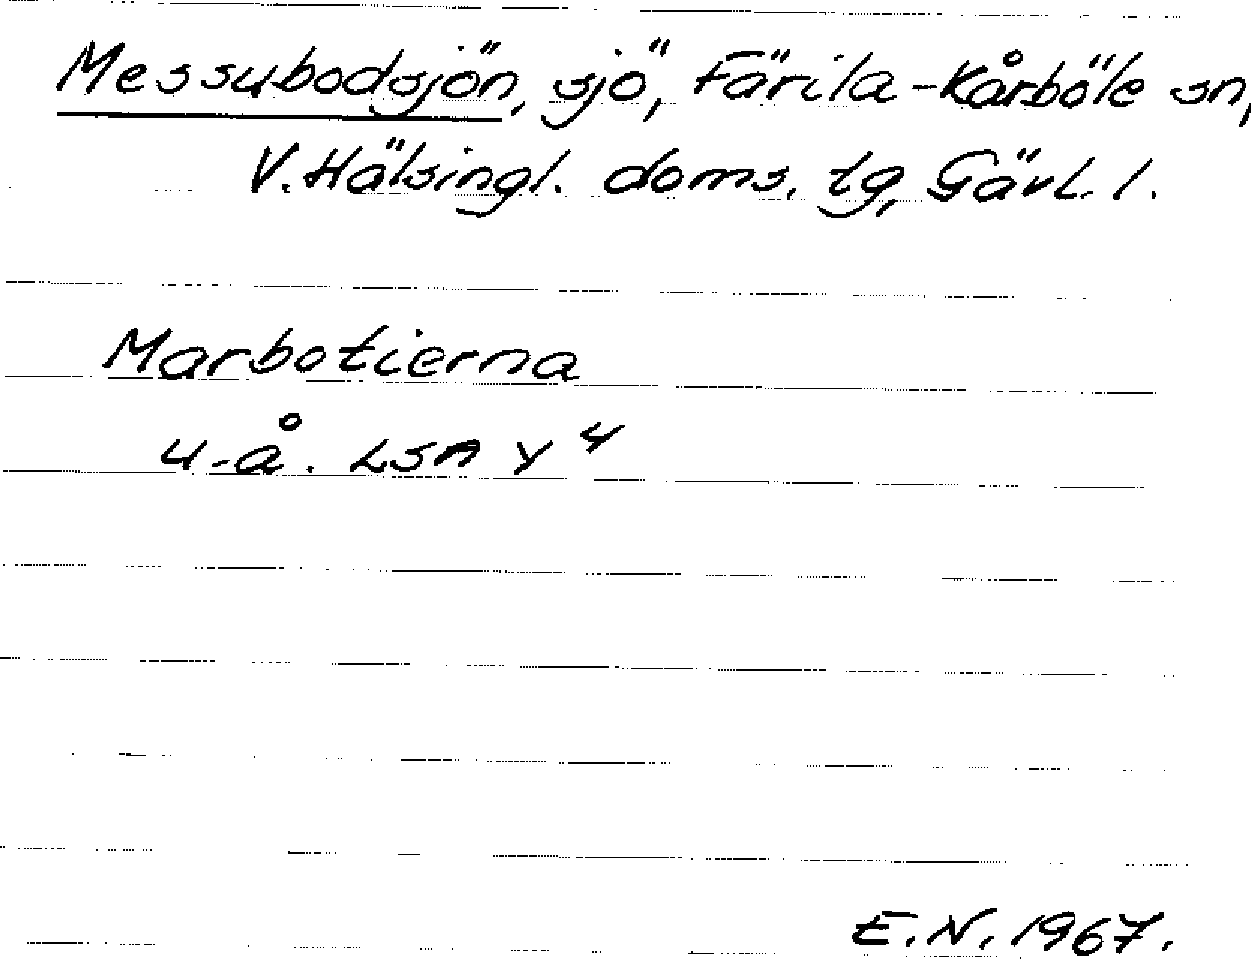 Messubodsjön, sjö, Färila-Kårböle sn,
V. Hälsingl. doms. tg, Gävl. l.
Marbotierna
u.å. LSA Y 4
E.N. 1967.